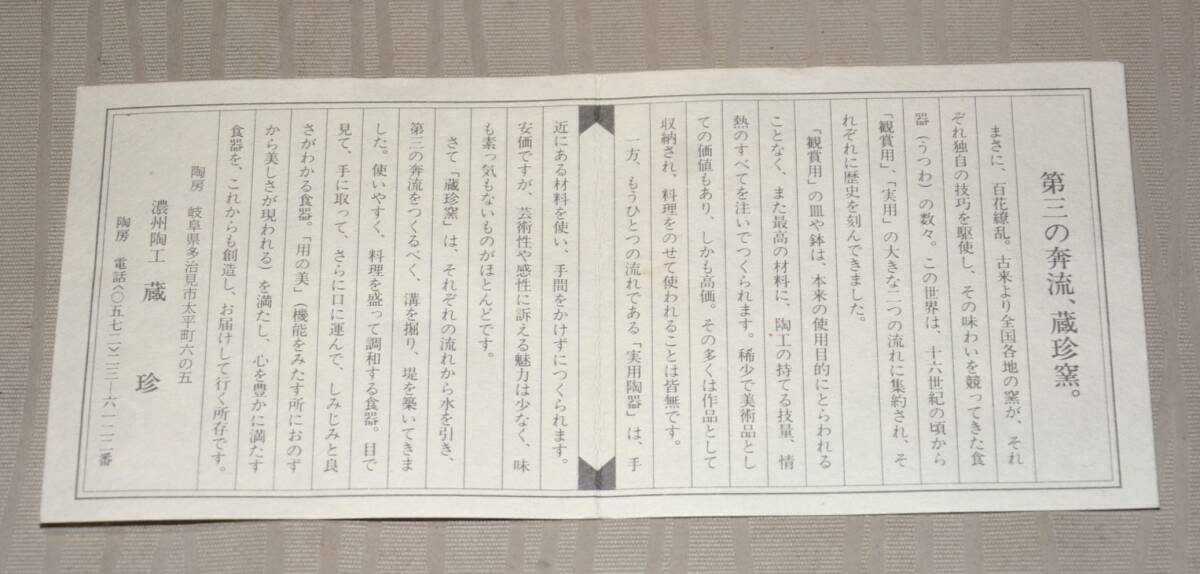 第三の奔流、蔵珍窯。
まさに、百花繚乱。古来より全国各地の窯が、それ
ぞれ独自の技巧を駆使し、その味わいを競ってきた食
器(うつわ)の数々。この世界は、十六世紀の頃から
「観賞用」、「実用」の大きな二つの流れに集約され、そ
れぞれに歴史を刻んできました。
「観賞用」の皿や鉢は、本来の使用目的にとらわれる
ことなく、また最高の材料に、陶工の持てる技量、情
熱のすべてを注いでつくられます。稀少で美術品とし
ての価値もあり、しかも高価。その多くは作品として
収納され、料理をのせて使われることは皆無です。
一方、もうひとつの流れである「実用陶器」は、手
近にある材料を使い、手間をかけずにつくられます。
安価ですが、芸術性や感性に訴える魅力は少なく、味
も素っ気もないものがほとんどです。
さて「蔵珍窯」は、それぞれの流れから水を引き、
第三の奔流をつくるべく、溝を掘り、堤を築いてきま
した。使いやすく、料理を盛って調和する食器。目で
見て、手に取って、さらに口に運んで、しみじみと良
さがわかる食器。「用の美」(機能をみたす所におのず
から美しさが現われる)を満たし、心を豊かに満たす
食器を、これからも創造し、お届けして行く所存です。
陶房 岐阜県多治見市太平町六の五
濃州陶工 蔵 珍
陶房 電話〈〇五七二〉二三―六一二二番